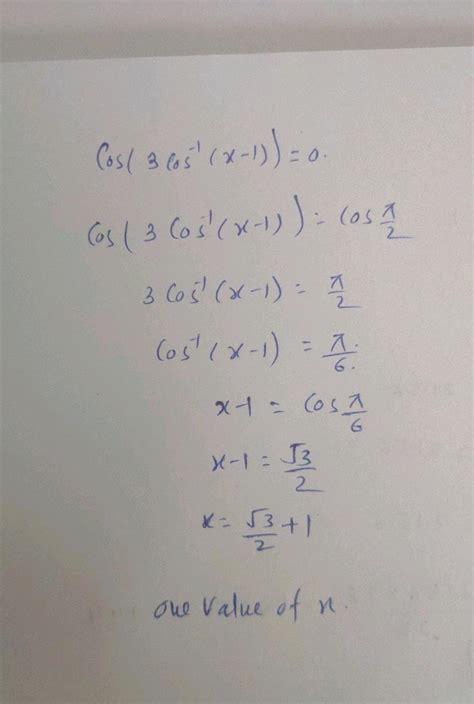 Cos( 3 Cos⁻¹ (x-1)) = 0.
Cos( 3 Cos⁻¹ (x-1) ) = Cos π/2
3 Cos⁻¹ (x-1) = π/2
Cos⁻¹ (x-1) = π/6.
x-1 = Cos π/6
x-1 = √3/2
x = √3/2 + 1
one value of x.